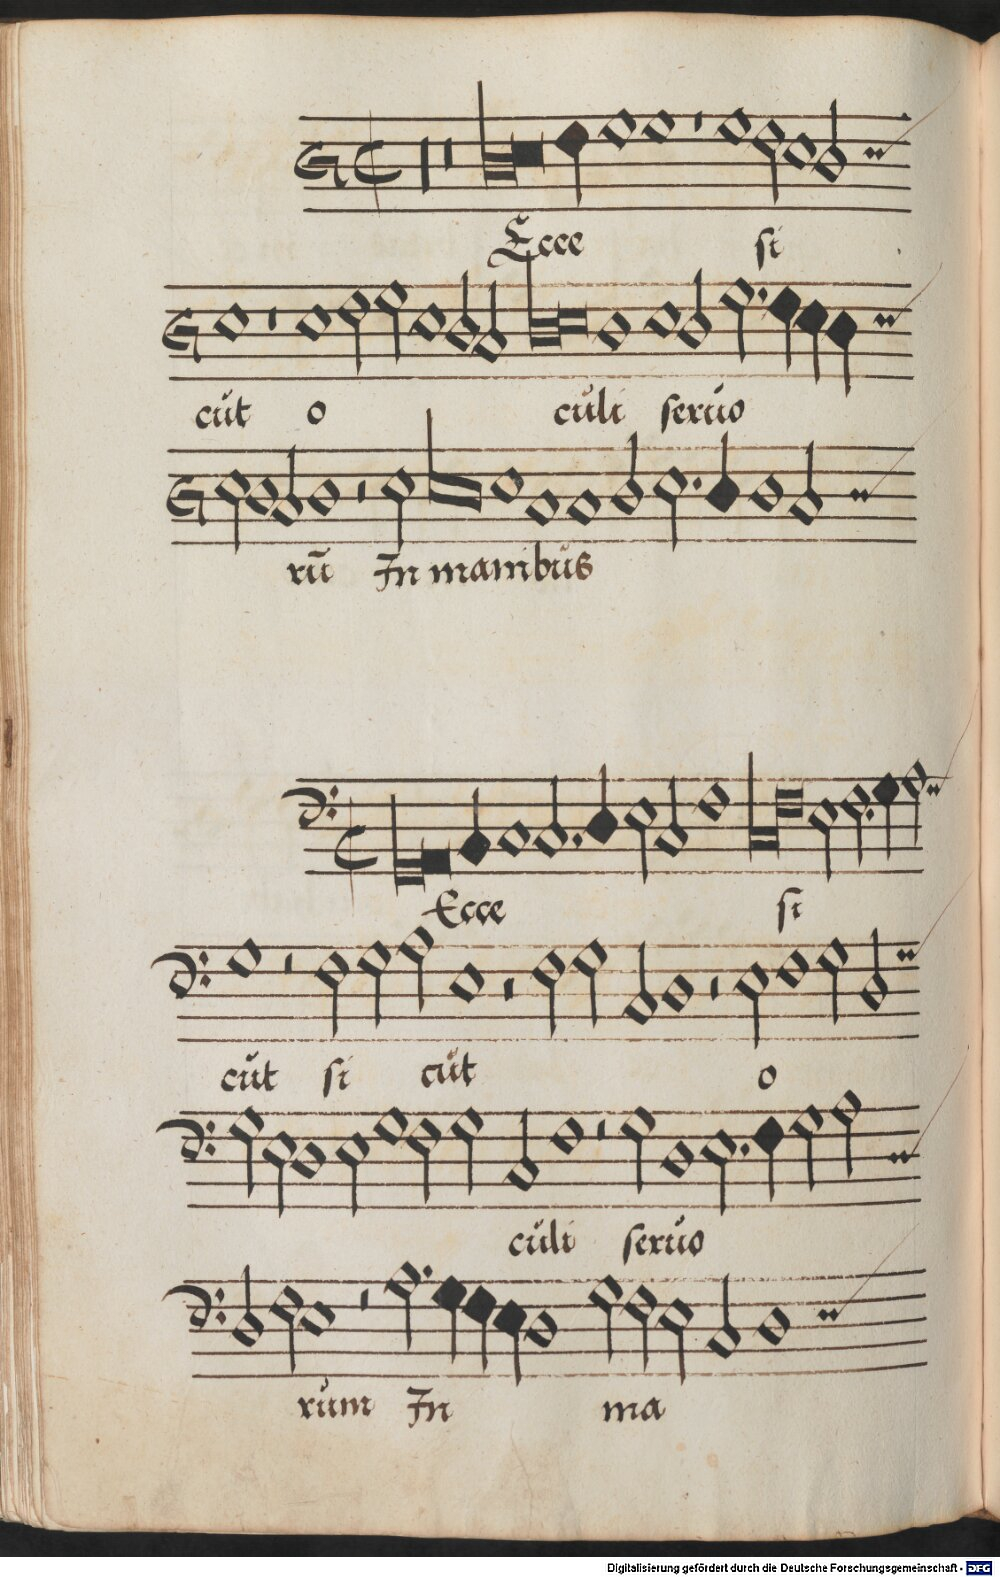 Ecce si
cůt o culi seruo
rū In manibus
Ecce si
cůt si cůt o
culi seruo
rům In ma
Digitalisierung gefördert durch die Deutsche Forschungsgemeinschaft - DFG